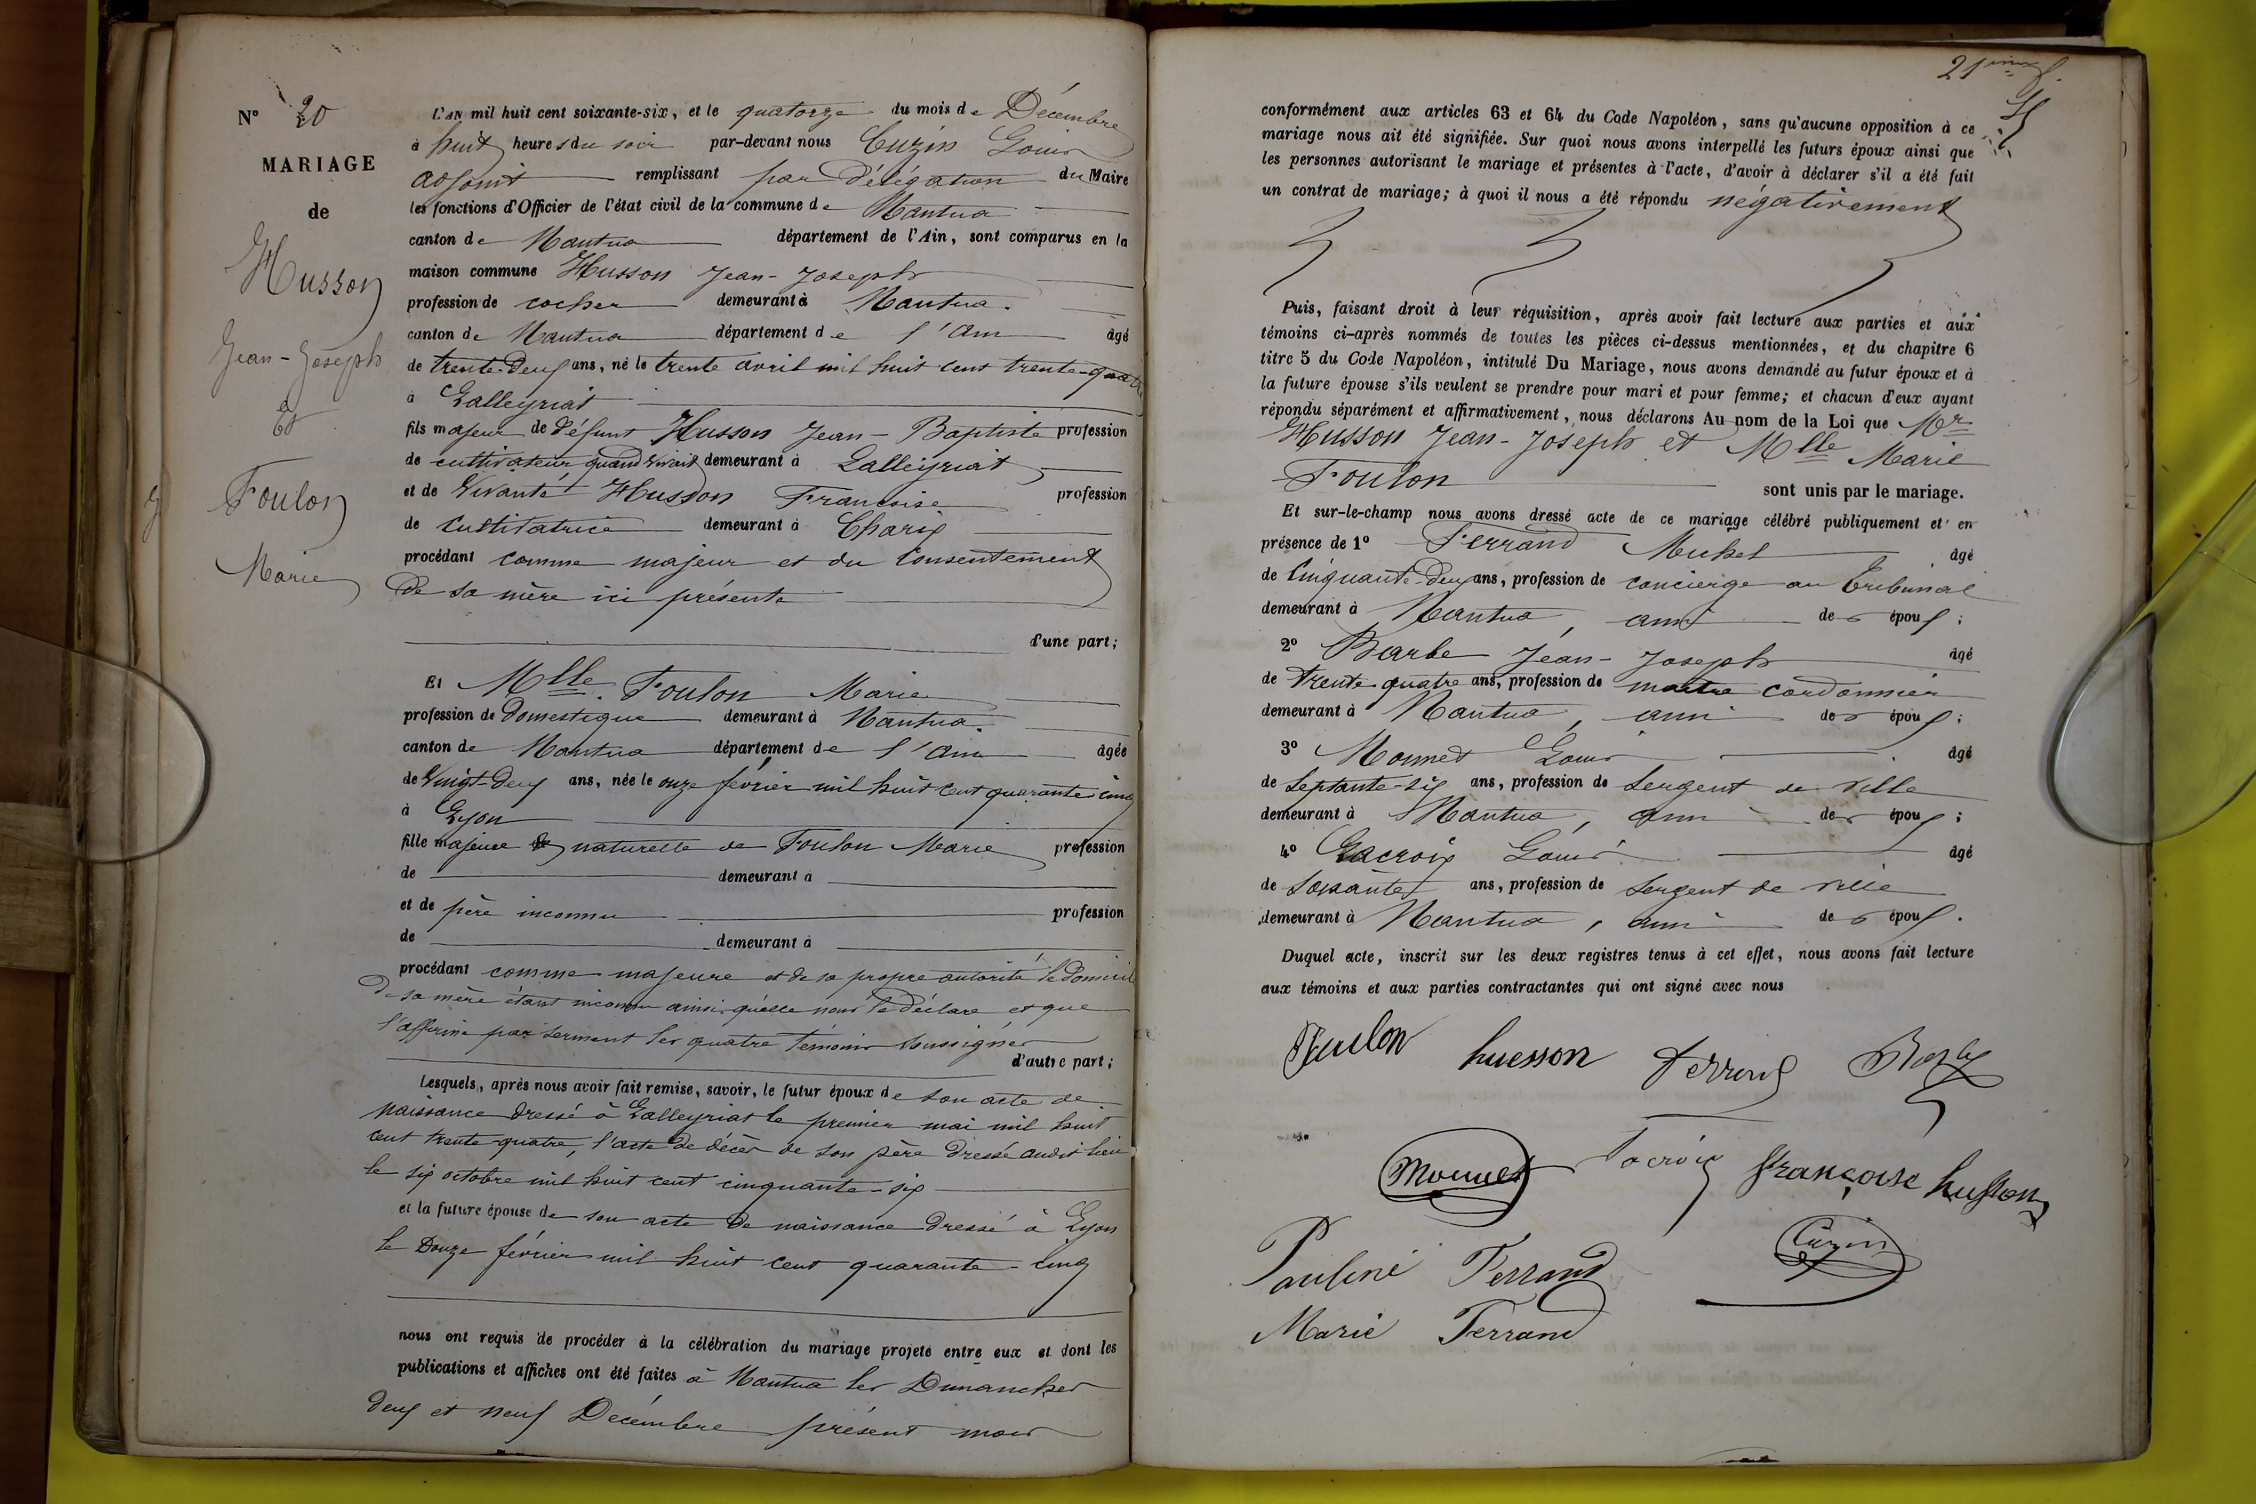 N° 20
MARIAGE
de
Husson
Jean-Joseph
Et
Foulon
Marie
L'AN mil huit cent soixante-six, et le quatorze du mois de Décembre
à huit heures du soir par-devant nous Cuzin Louis
adjoint remplissant par délégation du Maire
les fonctions d'Officier de l'état civil de la commune de Nantua
canton de Nantua département de l'Ain, sont comparus en la
maison commune Husson Jean-Joseph
profession de cocher demeurant à Nantua.
canton de Nantua département de l'Ain âgé
de trente-deux ans, né le trente avril mil huit cent trente-quatre
à Lalleyriat
fils majeur de défunt Husson Jean-Baptiste profession
de cultivateur quand vivait demeurant à Lalleyriat
et de vivante Husson Françoise profession
de cultivatrice demeurant à Charix
procédant comme majeur et du consentement
de sa mère ici présente
d'une part;
Et Mlle. Foulon Marie
profession de domestique demeurant à Nantua.
canton de Nantua département de l'Ain âgée
de vingt-deux ans, née le onze février mil huit cent quarante cinq
à Lyon
fille majeure naturelle de Foulon Marie profession
de demeurant à
et de père inconnu profession
de demeurant à
procédant comme majeure et de sa propre autorité le domicile
de sa mère étant inconnu ainsi qu'elle nous le déclare et que
l'affirme par serment les quatre témoins soussignés
d'autre part;
Lesquels, après nous avoir fait remise, savoir, le futur époux de son acte de
naissance dressé à Lalleyriat le premier mai mil huit
cent trente-quatre, l'acte de décès de son père dressé audit lieu
le six octobre mil huit cent cinquante-six
et la future épouse de son acte de naissance dressé à Lyon
le douze février mil huit cent quarante-cinq
nous ont requis de procéder à la célébration du mariage projeté entre eux et dont les
publications et affiches ont été faites à Nantua les Dimanches
deux et neuf Décembre présent mois
conformément aux articles 63 et 64 du Code Napoléon, sans qu'aucune opposition à ce
mariage nous ait été signifiée. Sur quoi nous avons interpellé les futurs époux ainsi que
les personnes autorisant le mariage et présentes à l'acte, d'avoir à déclarer s'il a été fait
un contrat de mariage; à quoi il nous a été répondu négativement
Puis, faisant droit à leur réquisition, après avoir fait lecture aux parties et aux
témoins ci-après nommés de toutes les pièces ci-dessus mentionnées, et du chapitre 6
titre 5 du Code Napoléon, intitulé Du Mariage, nous avons demandé au futur époux et à
la future épouse s'ils veulent se prendre pour mari et pour femme; et chacun d'eux ayant
répondu séparément et affirmativement, nous déclarons Au nom de la Loi que Mr
Husson Jean-Joseph et Mlle Marie
Foulon sont unis par le mariage.
Et sur-le-champ nous avons dressé acte de ce mariage célébré publiquement et en
présence de 1° Ferrand Michel âgé
de cinquante-deux ans, profession de concierge au Tribunal
demeurant à Nantua, ami des époux;
2° Barbe Jean-Joseph âgé
de trente quatre ans, profession de maître cordonnier
demeurant à Nantua, ami des époux;
3° Monnet Louis âgé
de septante-six ans, profession de sergent de ville
demeurant à Nantua, ami des époux;
4° Lacroix Louis âgé
de soixante ans, profession de sergent de ville
demeurant à Nantua, ami des époux.
Duquel acte, inscrit sur les deux registres tenus à cet effet, nous avons fait lecture
aux témoins et aux parties contractantes qui ont signé avec nous
Foulon huesson Ferrand Barbe
Monnet Lacroix françoise husson
Pauline Ferrand Cuzin
Marie Ferrand